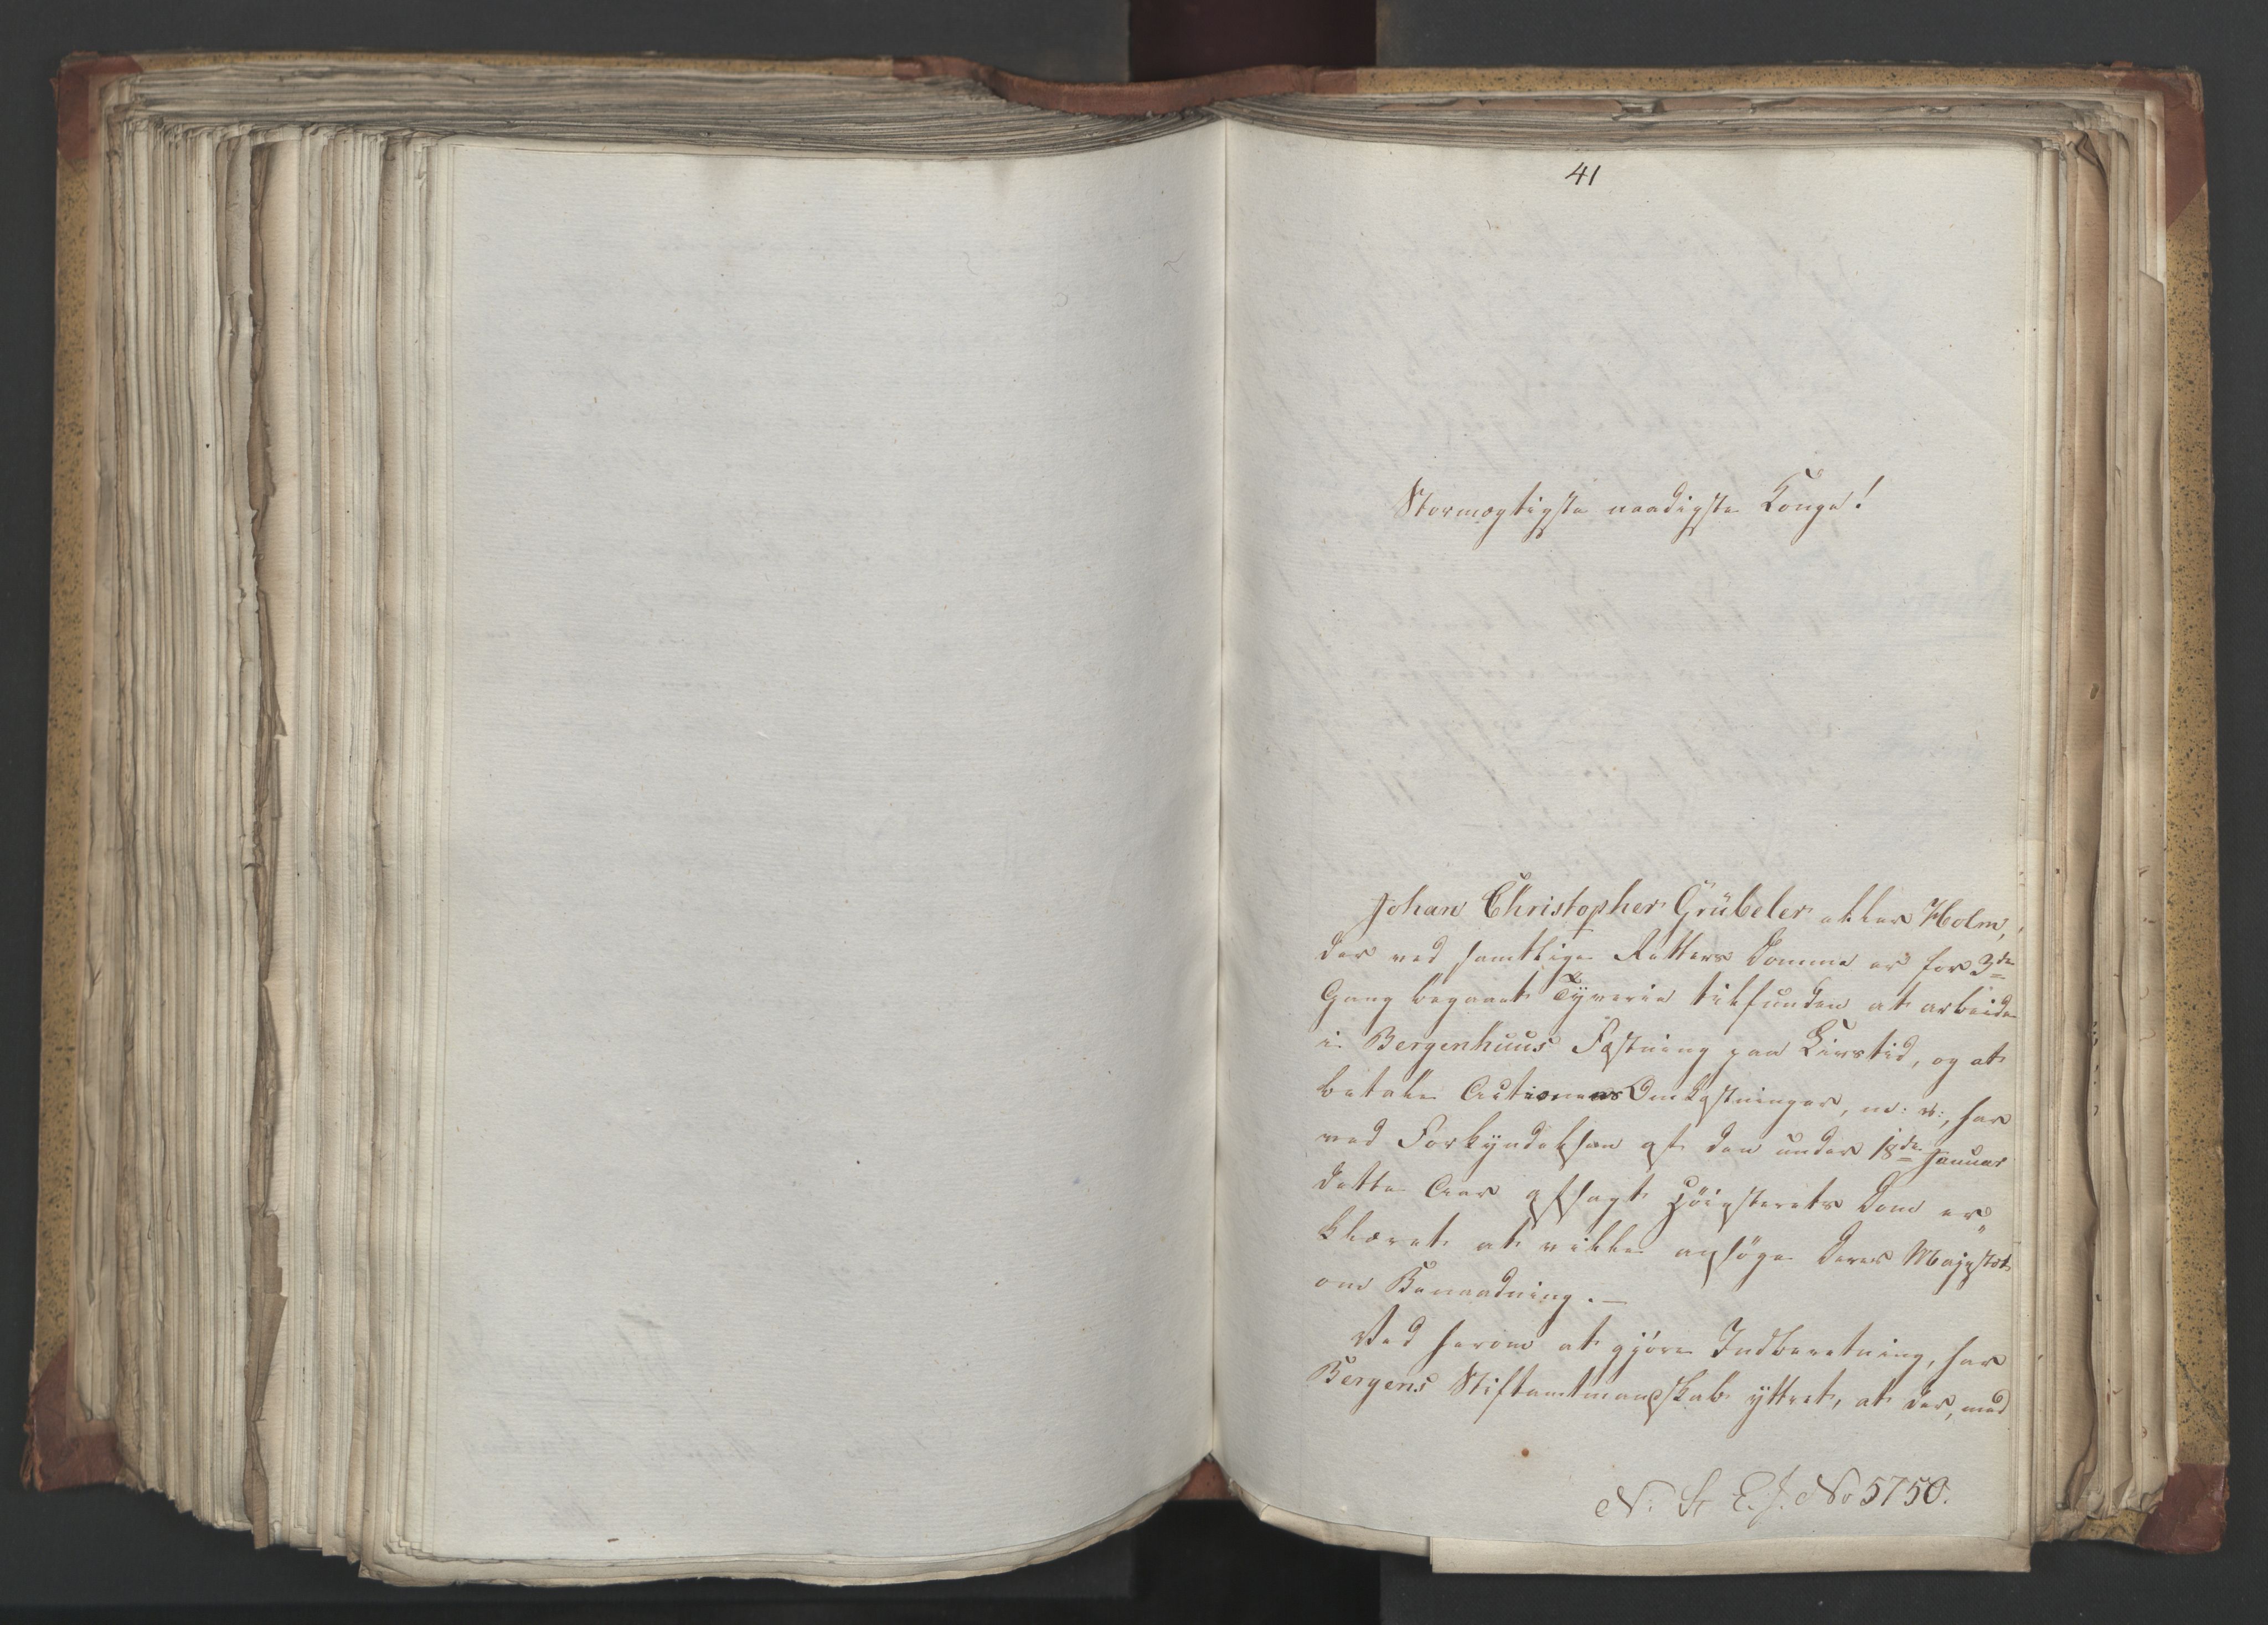 41
Stormægtigste naadigste Konge!
Johan Christopher Grübeler eller Holm,
der ved samtlige Retters Domme er for 3de
Gang begaaet Tyverie tilfunden at arbeide
i Bergenhuus Fæstning paa Livstid, og at
betale Actionens Omkostninger, m: v:, har
ved Forkyndelsen af den under 18de Januar
dette Aar afsagt Höiesterets Dom er„
klæret at ville ansöge Deres Majestæt
om Benaadning. —
Ved herom at gjöre Indberetning, har
Bergens Stiftamtmandskab yttret, at der, med
N. St E. J. No 5750.